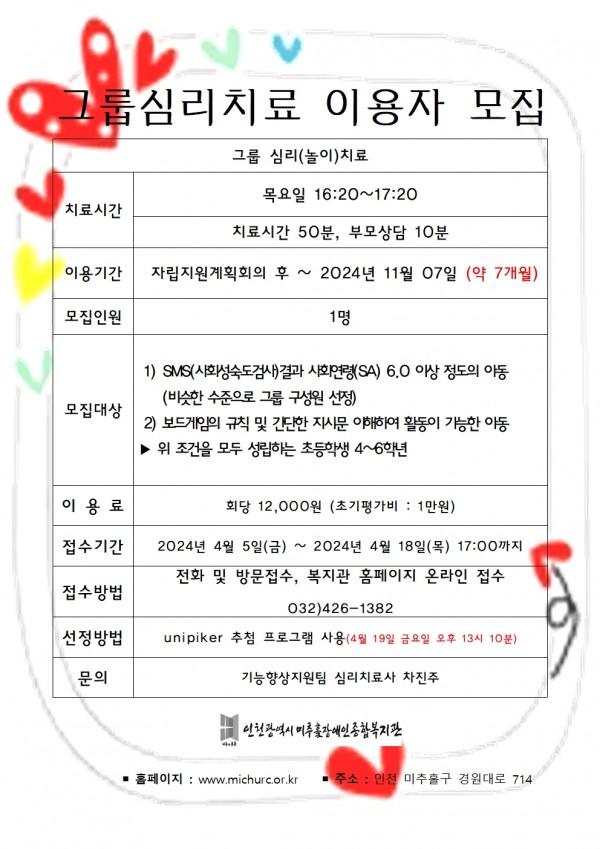 그룹심리치료 이용자 모집
그룹 심리(놀이)치료
치료시간
목요일 16:20~17:20
치료시간 50분, 부모상담 10분
이용기간
자립지원계획회의 후 ~ 2024년 11월 07일 (약 7개월)
모집인원
1명
모집대상
1) SMS(사회성숙도검사)결과 사회연령(SA) 6.0 이상 정도의 아동
(비슷한 수준으로 그룹 구성원 선정)
2) 보드게임의 규칙 및 간단한 지시문 이해하여 활동이 가능한 아동
▶ 위 조건을 모두 성립하는 초등학생 4~6학년
이 용 료
회당 12,000원 (초기평가비 : 1만원)
접수기간
2024년 4월 5일(금) ~ 2024년 4월 18일(목) 17:00까지
접수방법
전화 및 방문접수, 복지관 홈페이지 온라인 접수
032)426-1382
선정방법
unipiker 추첨 프로그램 사용(4월 19일 금요일 오후 13시 10분)
문의
기능향상지원팀 심리치료사 차진주
인천광역시미추홀장애인종합복지관
▪ 홈페이지 : www.michurc.or.kr ▪ 주소 : 인천 미추홀구 경원대로 714